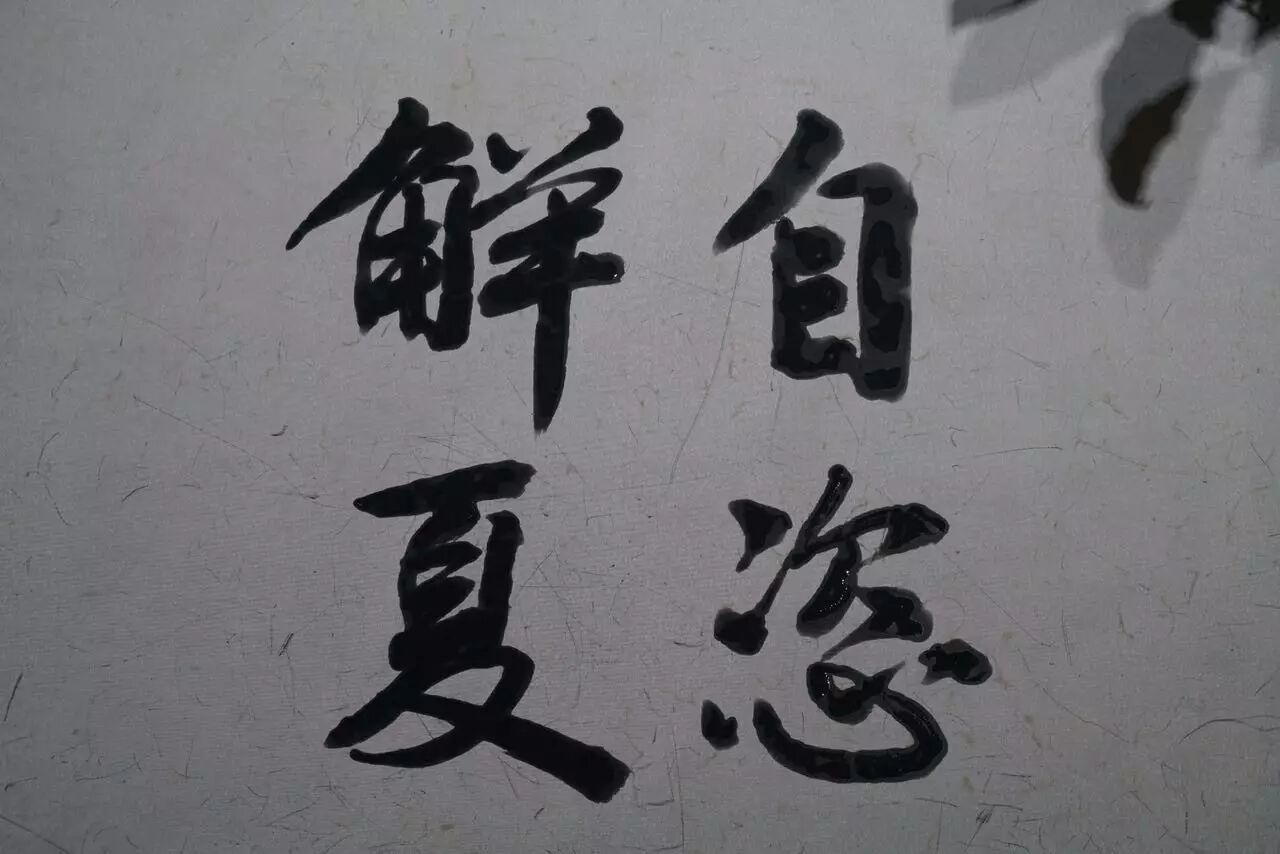 自恣
解夏